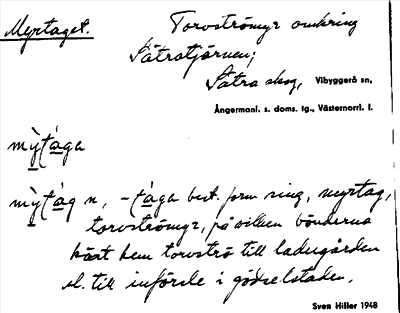 Myrtaget.
Torvströmyr omkring
Sätratjärnen;
Sätra skog, Vibyggerå sn,
Ångermanl. s. doms. tg., Västernorrl. l.
mỳtága
mỳtág n, -tága best. form sing, myrtag,
torvströmyr, på vilken bönderna
käst hem torvströ till ladugården
el. till införsle i gödselstaden.
Sven Hiller 1948